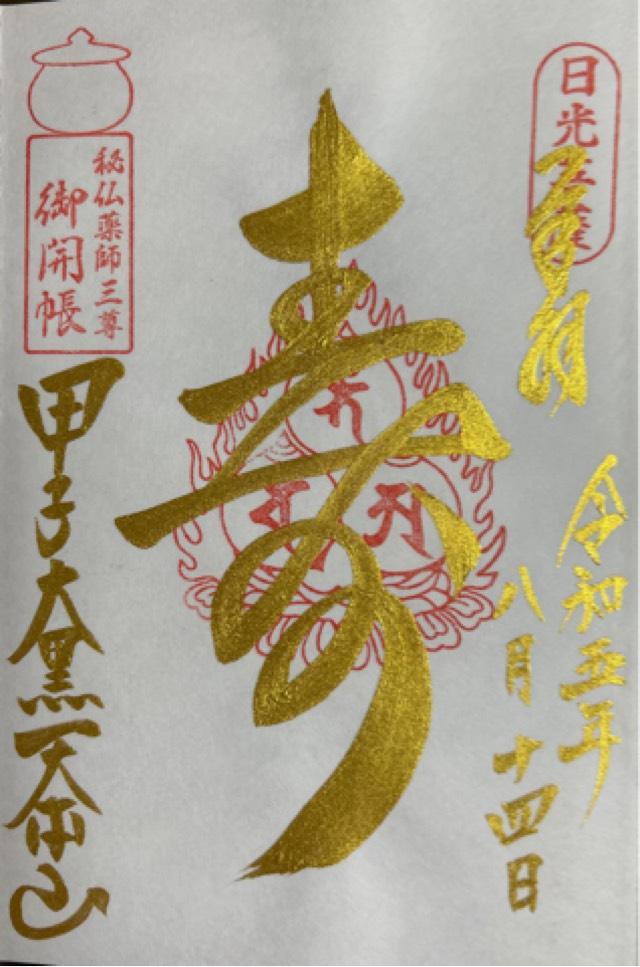 日光
奉拝
令和五年
八月十四日
寿
秘仏薬師三尊
御開帳
甲子大黒天本山